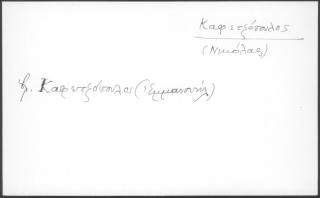 Καφετζόπουλος
(Νικόλαος)
βλ. Καφετζόπουλος (Ἐμμανουήλ)